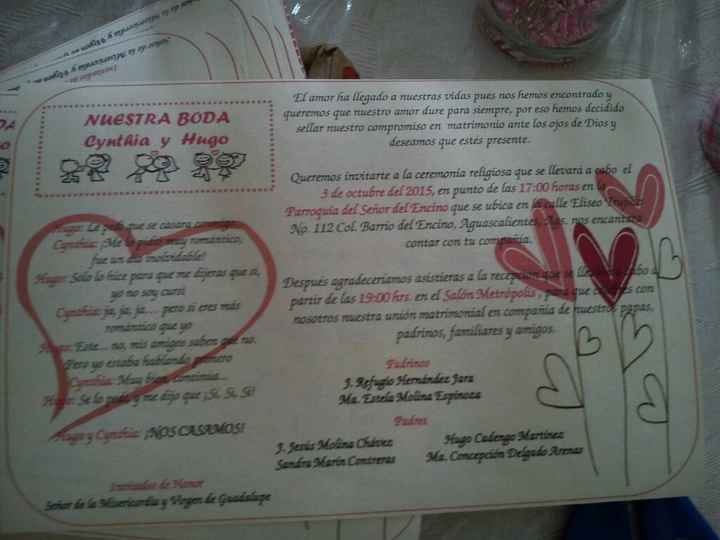 NUESTRA BODA
Cynthia y Hugo
Hugo: Le pedí que se casara conmigo
Cynthia: ¡Me lo pidió muy romántico,
fue un día inolvidable!
Hugo: Solo lo hice para que me dijeras que si,
yo no soy cursi
Cynthia: ja, ja, ja.... pero si eres más
romántico que yo
Hugo: Este... no, mis amigos saben que no.
Pero yo estaba hablando primero
Cynthia: Muy bien, continúa...
Hugo: Se lo pedí y me dijo que ¡Si, Si, Si!
Hugo y Cynthia: ¡NOS CASAMOS!
Invitados de Honor
Señor de la Misericordia y Virgen de Guadalupe
El amor ha llegado a nuestras vidas pues nos hemos encontrado y
queremos que nuestro amor dure para siempre, por eso hemos decidido
sellar nuestro compromiso en matrimonio ante los ojos de Dios y
deseamos que estés presente.
Queremos invitarte a la ceremonia religiosa que se llevará a cabo el
3 de octubre del 2015, en punto de las 17:00 horas en la
Parroquia del Señor del Encino que se ubica en la calle Eliseo
No. 112 Col. Barrio del Encino, Aguascalientes, Ags. nos encantará
contar con tu compañía.
Después agradeceríamos asistieras a la recepción que se llevará a cabo a
partir de las 19:00 hrs. en el Salón Metrópolis, para que celebres con
nosotros nuestra unión matrimonial en compañía de nuestros papas,
padrinos, familiares y amigos.
Padrinos
J. Refugio Hernández Jara
Ma. Estela Molina Espinoza
Padres
J. Jesús Molina Chávez
Sandra Marín Contreras
Hugo Cadengo Martínez
Ma. Concepción Delgado Arenas